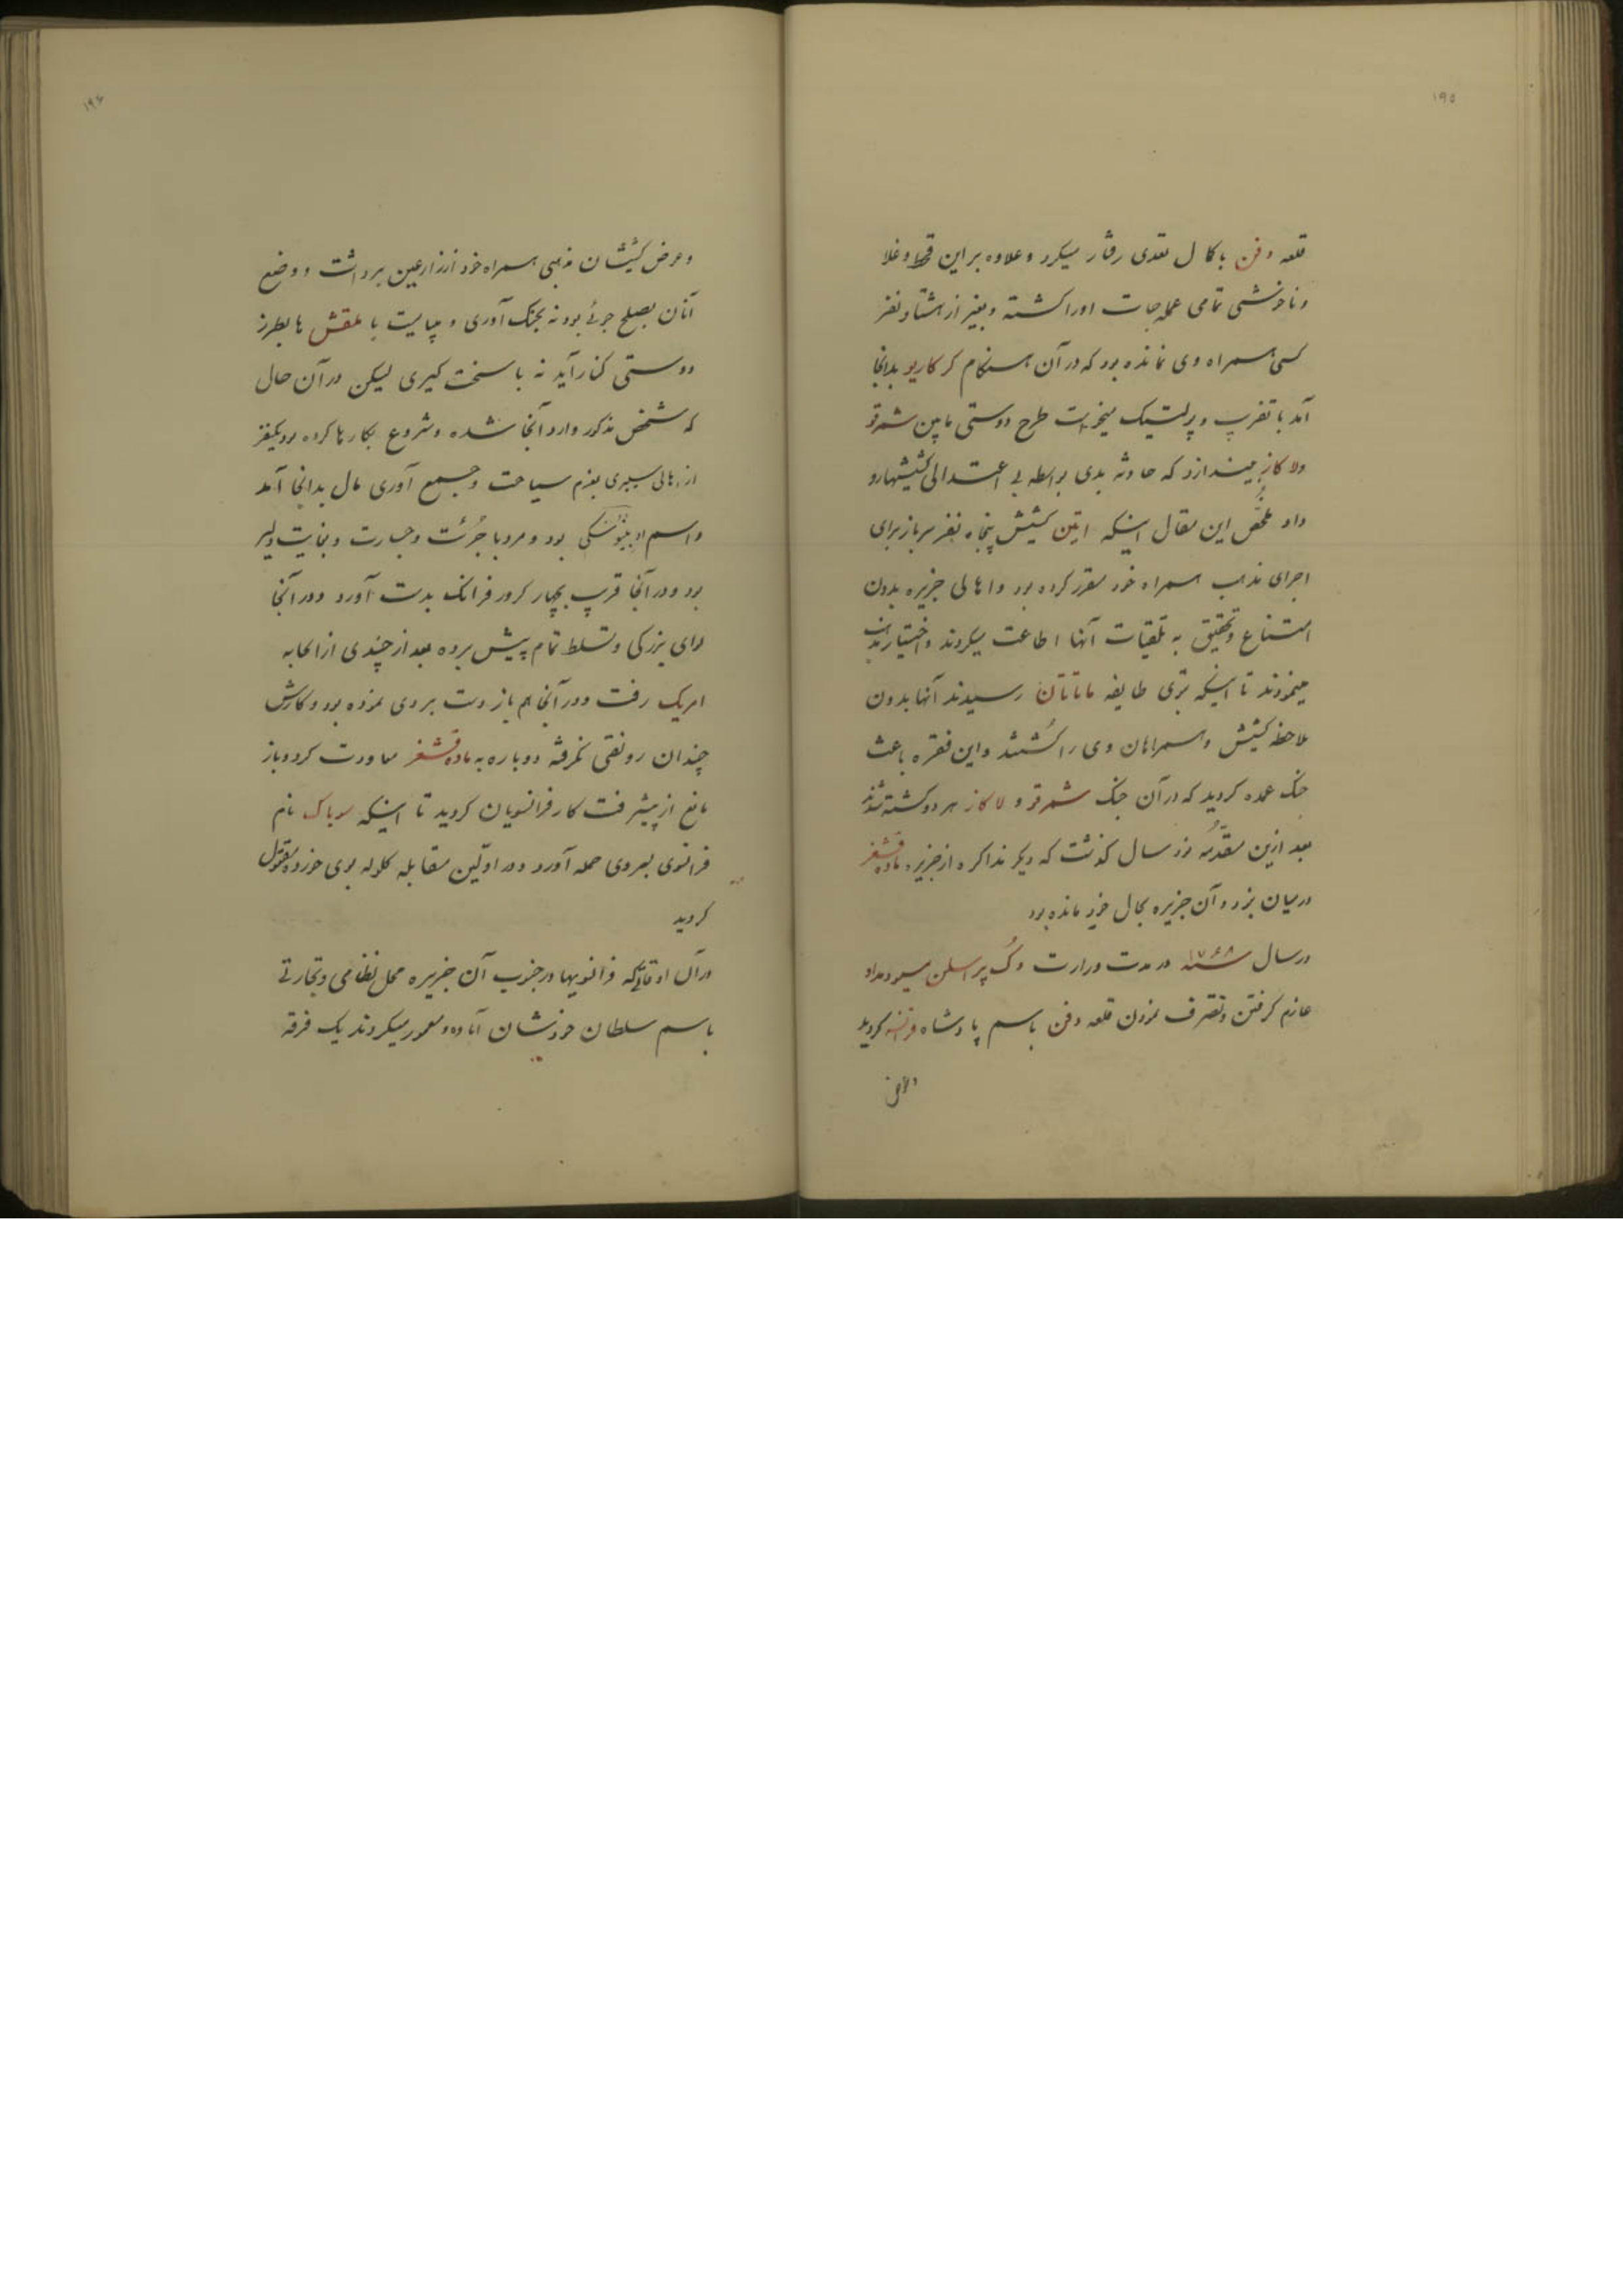 ۱۹۵
قلعه دفن باکمال تعدی رفتار میکرد و علاوه بر این قحط و غلا
و ناخوشی تمامی عمله‌جات او را کشته و بغیر از هشتاد نفر
کسی همراه وی نمانده بود که در آن هنگام کر کاریو بدانجا
آمد با تقرب و پولتیک میخواست طرح دوستی مابین شمرقو
و لاکاز بیندازد که حادثه بدی بواسطه بی اعتدالی کشیشها رو
داد ملخص این مقال اینکه اتین کشیش پنجاه نفر سرباز برای
اجرای مذهب همراه خود مقرر کرده بود و اهالی جزیره بدون
امتناع و تحقیق به تلقیات آنها اطاعت میکردند و اختیار مذهب
مینمودند تا اینکه بنزدی طایفه ماتاتان رسیدند آنها بدون
ملاحظه کشیش و همراهان وی را کُشتند و این فقره باعث
جنک عمده کردید که در آن جنک شمرقو و لاکاز هر دو کشته شدند
بعد ازین مقدّمه نود سال کذشت که دیکر مذاکره از جزیره ماده‌قشغر
در میان نبود و آن جزیره بحال خود مانده بود
در سال ۱۷۶۸ در مدت وزارت دُک پراسلن مسیو دمداو
عازم کرفتن و تصرف نمودن قلعه دفن باسم پادشاه فرانسه کردید
۱۹۶
و عوض کشیشان مذهبی همراه خود از زارعین برداشت و وضع
آنان بصلح جوئی بود نه بجنک آوری و میبایست با ملقش‌ها بطرز
دوستی کنار آید نه با سخت کیری لیکن در آن حال
که شخص مذکور وارد آنجا شده و شروع بکارها کرده بود یکنفر
از اهالی سیبری بعزم سیاحت و جمع آوری مال بدانجا آمد
و اسم او بنیوسکی بود و مرد با جُرئت و جسارت و بغایت دلیر
بود و در آنجا قریب بچهار کرور فرانک بدست آورد و در آنجا
برای بزرکی و تسلط تمام پیش برده بعد از چندی از انجا به
امریک رفت و در آنجا هم باز دست بردی نموده بود و کارش
چندان رونقی نکرفته دوباره به ماده‌قشغر معاودت کرد و باز
مانع از پیشرفت کار فرانسویان کردید تا اینکه سوباک نام
فرانسوی بر وی حمله آورد و در اوّلین مقابله کلوله بوی خورده مقتول
کردید
در آن اوقاتی که فرانسویها در جنوب آن جزیره محل نظامی و تجارتی
باسم سلطان خودشان آماده و معمور میکردند یک فرقه